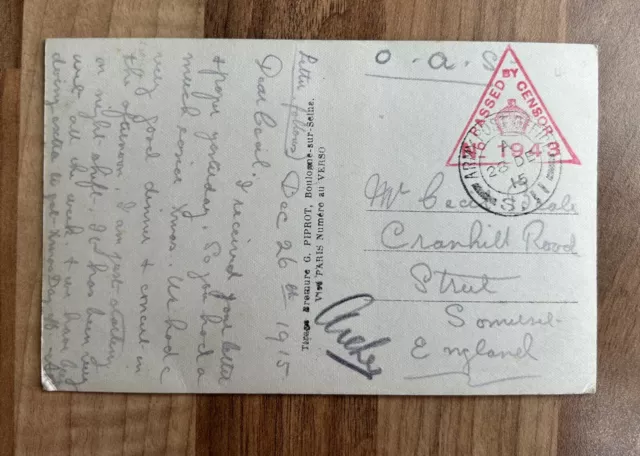 Letter follows
Dec 26th 1915
Dear Cecil. I received your letter
& paper yesterday. So you had a
much nicer Xmas. We had a
very good dinner & concert in
the afternoon. I am just starting
on night shift. It has been very
wet all the week & we have had
Tirage Bromure G. PIPROT, Boulogne-sur-Seine.
PARIS Numéro au VERSO
O. A. S.
PASSED BY CENSOR
1943
ARMY POST OFFICE
26 DE
15
S.11
Mr Cecil
Cranhill Road
Street
Somerset
England